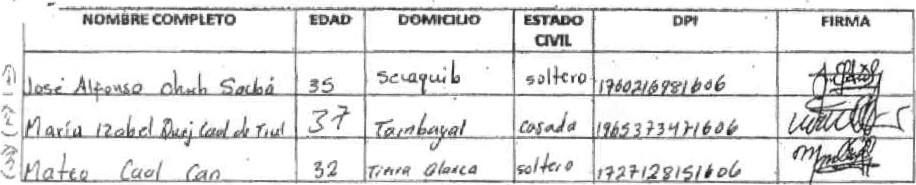 NOMBRE COMPLETO EDAD DOMICILIO ESTADO CIVIL DPI FIRMA
1) José Alfonso Chub Sacbá 35 Seraquib soltero 1760216981606
2) María Izabel Quej Caal de Tiul 37 Tambayal casada 1965373471606
3) Mateo Caal Can 32 Tierra Blanca soltero 1727128151606